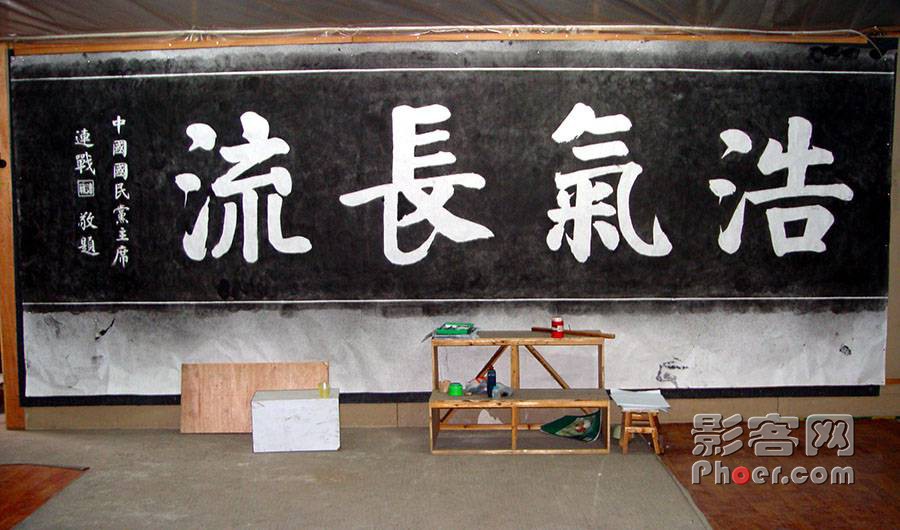 浩氣長流
中國國民黨主席
連戰 敬題
影客网
Phoer.com